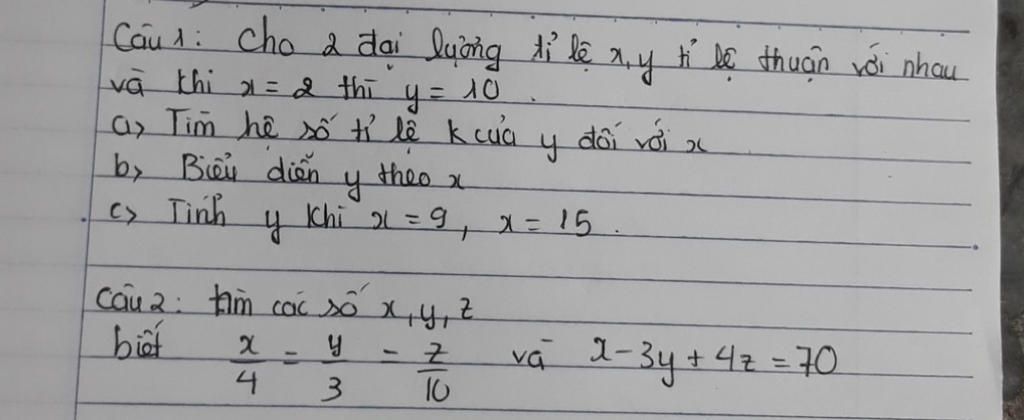 Câu 1: Cho 2 đại lượng tỉ lệ x, y tỉ lệ thuận với nhau
và khi x = 2 thì y = 10.
a, Tìm hệ số tỉ lệ k của y đối với x
b, Biểu diễn y theo x
c, Tính y khi x = 9, x = 15.
Câu 2: tìm các số x, y, z
biết x/4 = y/3 = z/10 và x - 3y + 4z = 70